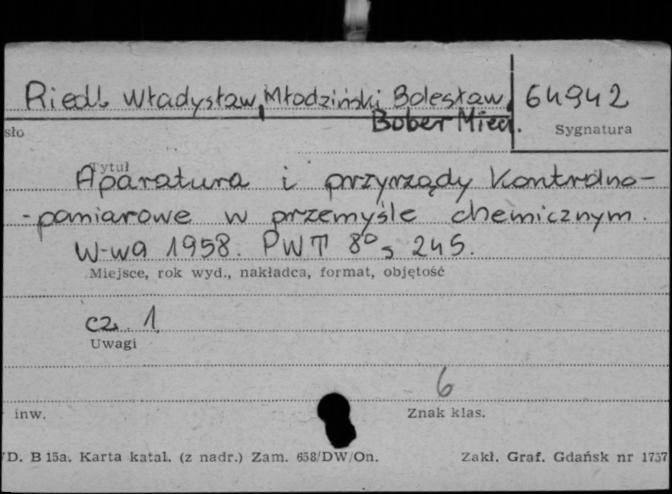 Riedl Władysław, Młodziński Bolesław, 64942
Bober Miecz.
sło Sygnatura
Tytuł
Aparatura i przyrządy kontrolno-
-pomiarowe w przemyśle chemicznym.
W-wa 1958. PWT 8° s 245.
Miejsce, rok wyd., nakładca, format, objętość
cz. 1
Uwagi
6
inw. Znak klas.
D. B 15a. Karta katal. (z nadr.) Zam. 658/DW/On. Zakł. Graf. Gdańsk nr 1757